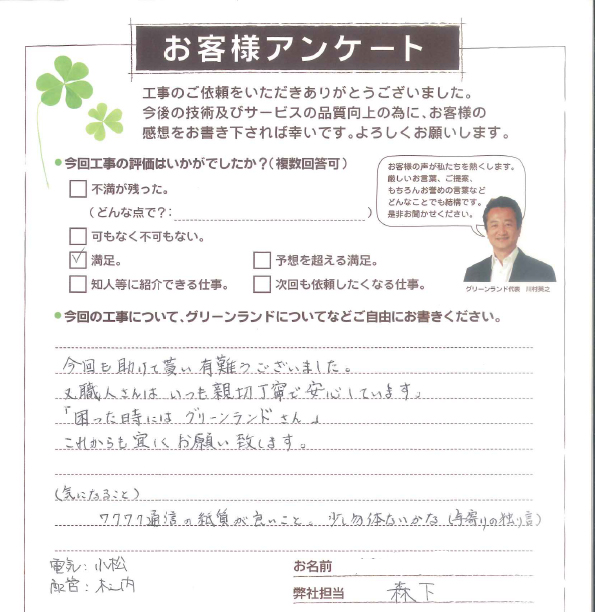 お客様アンケート
工事のご依頼をいただきありがとうございました。
今後の技術及びサービスの品質向上の為に、お客様の
感想をお書き下されば幸いです。よろしくお願いします。
●今回工事の評価はいかがでしたか？（複数回答可）
不満が残った。
（どんな点で？：　　　）
可もなく不可もない。
満足。
予想を超える満足。
知人等に紹介できる仕事。
次回も依頼したくなる仕事。
お客様の声が私たちを熱くします。
厳しいお言葉、ご提案、
もちろんお誉めの言葉など
どんなことでも結構です。
是非お聞かせください。
グリーンランド代表 川村英之
●今回の工事について、グリーンランドについてなどご自由にお書きください。
今回も助けて貰い有難うございました。
又職人さんはいつも親切丁寧で安心しています。
「困った時には グリーンランドさん」
これからも宜しくお願い致します。
（気になること）
ワクワク通信の紙質が良いこと。少し勿体ないかな（年寄りの独り言）
電気：小松
配管：木之内
お名前
弊社担当 森下